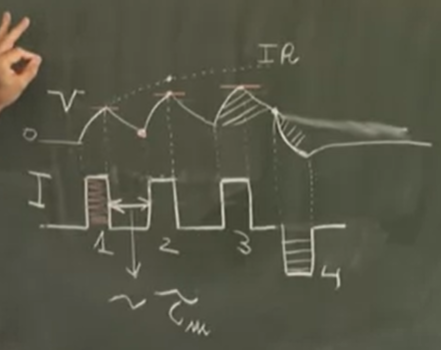 IR
V
0
I
1 2 3
4
~ τm